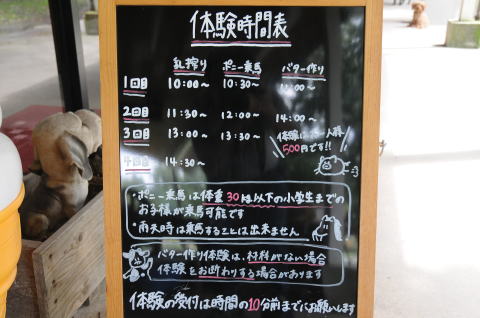 体験時間表
乳搾り ポニー乗馬 バター作り
1回目 10:00～ 10:30～ 11:00～
2回目 11:30～ 12:00～ 14:00～
3回目 13:00～ 13:30～ 体験は お一人様
500円です!!
4回目 14:30～
・ポニー乗馬は体重30kg以下の小学生までの
お子様が乗馬可能です
・雨天時は乗馬することは出来ません
バター作り体験は、材料がない場合
体験をお断わりする場合があります
体験の受付は時間の10分前までにお願いします